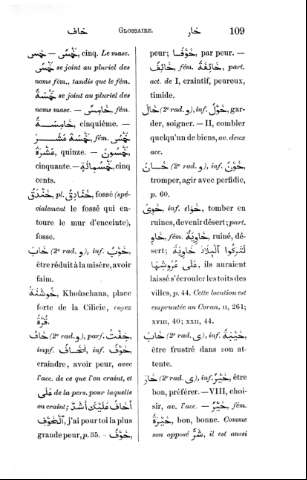 خاف GLOSSAIRE. خار 109
خَمْسٌ — خَمْسٌ, cinq. Le masc.
خَمْسٌ se joint au pluriel des
noms fém., tandis que le fém.
خَمْسَةٌ se joint au pluriel des
noms masc. — خَامِسٌ, fém.
خَامِسَةٌ, cinquième. —
خَمْسَةَ عَشَرَ, fém. خَمْسَ
عَشْرَةَ, quinze. — خَمْسُونَ,
cinquante. — خَمْسُمِائَةٍ, cinq
cents.
خَنْدَقٌ, pl. خَنَادِقُ, fossé (spé-
cialement le fossé qui en-
toure le mur d'enceinte),
fosse.
خَابَ (2e rad. و), inf. خَوْبٌ,
être réduit à la misère, avoir
faim.
Khoûschana, place
forte de la Cilicie, voyez
خَافَ (2e rad. و), parf. خِفْتُ,
impf. أَخَافُ, inf. خَوْفٌ,
craindre, avoir peur, avec
l'acc. de ce que l'on craint, et
عَلَى de la pers. pour laquelle
on craint; أَخَافُ عَلَيْكَ أَشَدَّ
الخَوْفِ, j'ai pour toi la plus
grande peur, p. 35. — خَوْفٌ,
peur; خَوْفًا, par peur. —
خَائِفٌ, fém. خَائِفَةٌ, part.
act. de I, craintif, peureux,
timide.
خَالَ (2e rad. و), inf. خَوْلٌ, gar-
der, soigner. — II, combler
quelqu'un de biens, av. deux
acc.
خَانَ (2e rad. و), inf. خَوْنٌ,
tromper, agir avec perfidie,
p. 60.
خَوَى, inf. خَوَاء, tomber en
ruines, devenir désert; part.
خَاوٍ, fém. خَاوِيَةٌ, ruiné, dé-
sert; لَتَرَكُوا البِلَادَ خَاوِيَةً
عَلَى عُرُوشِهَا, ils auraient
laissé s'écrouler les toits des
villes, p. 44. Cette locution est
empruntée au Coran, II, 261;
XVIII, 40; XXII, 44.
خَابَ (2e rad. ى), inf. خَيْبَةٌ,
être frustré dans son at-
tente.
خَارَ (2e rad. ى), inf. خَيْرٌ, être
bon, préférer. — VIII, choi-
sir, av. l'acc. — خَيْرٌ, fém.
خَيْرَةٌ, bon, bonne. Comme
son opposé شَرٌّ, il est aussi